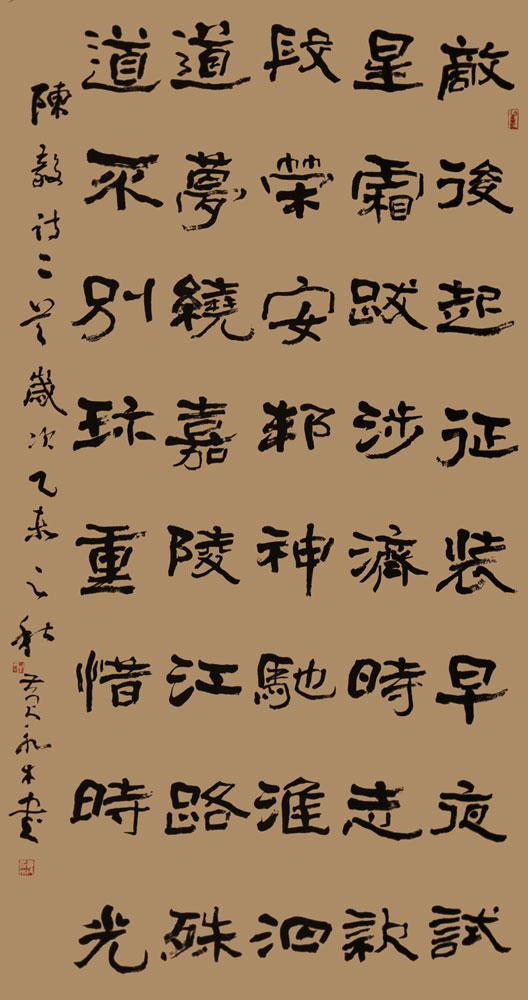 敵後起征裝早夜試
星霜跋涉濟時志
段榮安邦神馳淮泗
道夢繞嘉陵江路殊
道不別珎重惜時光
陳毅詩二首歲次乙未之秋黄永木書